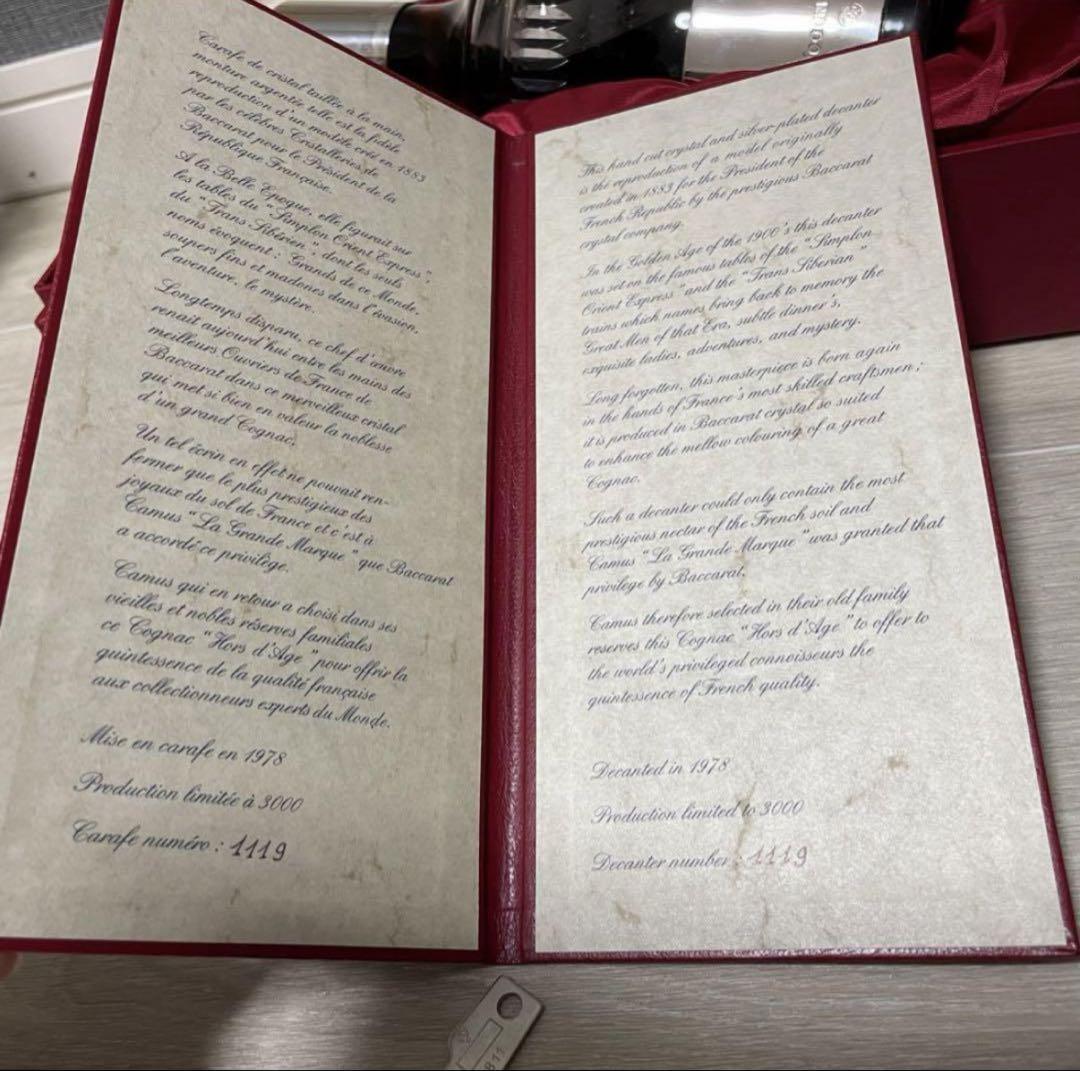 Carafe de cristal taillée à la main,
monture argentée telle est la fidèle
reproduction d'un modèle créé en 1883
par les célèbres Cristalleries de
Baccarat pour le Président de la
République Française.
A la Belle Epoque, elle figurait sur
les tables du "Simplon Orient Express",
du "Trans-Sibérien", dont les seuls
noms évoquent : Grands de ce Monde,
soupers fins et madones dans l'évasion,
l'aventure, le mystère.
Longtemps disparu, ce chef d'œuvre
renaît aujourd'hui entre les mains des
meilleurs Ouvriers de France de
Baccarat dans ce merveilleux cristal
qui met si bien en valeur la noblesse
d'un grand Cognac.
Un tel écrin en effet ne pouvait ren-
fermer que le plus prestigieux des
joyaux du sol de France et c'est à
Camus "La Grande Marque" que Baccarat
a accordé ce privilège.
Camus qui en retour a choisi dans ses
vieilles et nobles réserves familiales
ce Cognac "Hors d'Age" pour offrir la
quintessence de la qualité française
aux collectionneurs experts du Monde.
Mise en carafe en 1978
Production limitée à 3000
Carafe numéro : 1119
This hand cut crystal and silver-plated decanter
is the reproduction of a model originally
created in 1883 for the President of the
French Republic by the prestigious Baccarat
crystal company.
In the Golden Age of the 1900's this decanter
was set on the famous tables of the "Simplon
Orient Express" and the "Trans Siberian"
trains which names bring back to memory the
Great Men of that Era, subtle dinner's,
exquisite ladies, adventures, and mystery.
Long forgotten, this masterpiece is born again
in the hands of France's most skilled craftsmen ;
it is produced in Baccarat crystal so suited
to enhance the mellow colouring of a great
Cognac.
Such a decanter could only contain the most
prestigious nectar of the French soil and
Camus "La Grande Marque" was granted that
privilege by Baccarat.
Camus therefore selected in their old family
reserves this Cognac "Hors d'Age" to offer to
the world's privileged connoisseurs the
quintessence of French quality.
Decanted in 1978
Production limited to 3000
Decanter number : 1119